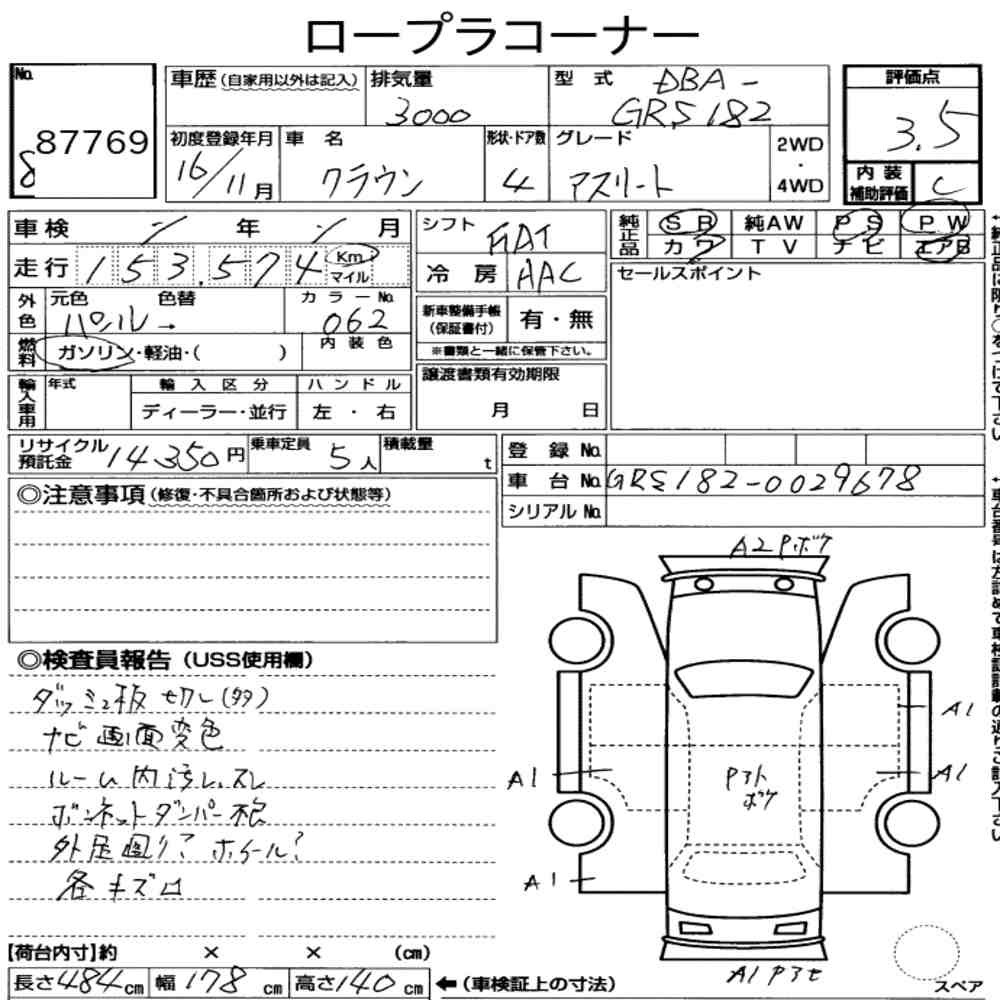 ロープラコーナー
No. 87769
8
車歴(自家用以外は記入) 排気量 3000
型式 DBA-
GRS182
評価点 3.5
内装補助評価 C
初度登録年月 16/11月
車名 クラウン
形状・ドア数 4
グレード アスリート
2WD・4WD
車検 年 月
走行 153,574 Km マイル
シフト FAT
冷房 AAC
純正品 SR 純AW PS PW
カワ TV ナビ エアB
セールスポイント
外色 元色 パール→ 色替
カラーNo. 062
燃料 ガソリン・軽油・( )
内装色
新車整備手帳(保証書付) 有・無
※書類と一緒に保管下さい。
譲渡書類有効期限
月 日
輸入車用 年式 輸入区分 ハンドル
ディーラー・並行 左・右
リサイクル預託金 14350円
乗車定員 5人
積載量 t
登録No.
車台No. GRS182-0029678
シリアルNo.
◎注意事項(修復・不具合箇所および状態等)
◎検査員報告(USS使用欄)
ダッシュ板切レ(多)
ナビ画面変色
ルーム内汚レ、スレ
ボンネットダンパー
外
各キズ
A2 Pボケ
A1
A1
A1
A1
ボケ
A1
スペア
【荷台内寸】約 × × (cm)
長さ484cm 幅178cm 高さ140cm
←(車検証上の寸法)